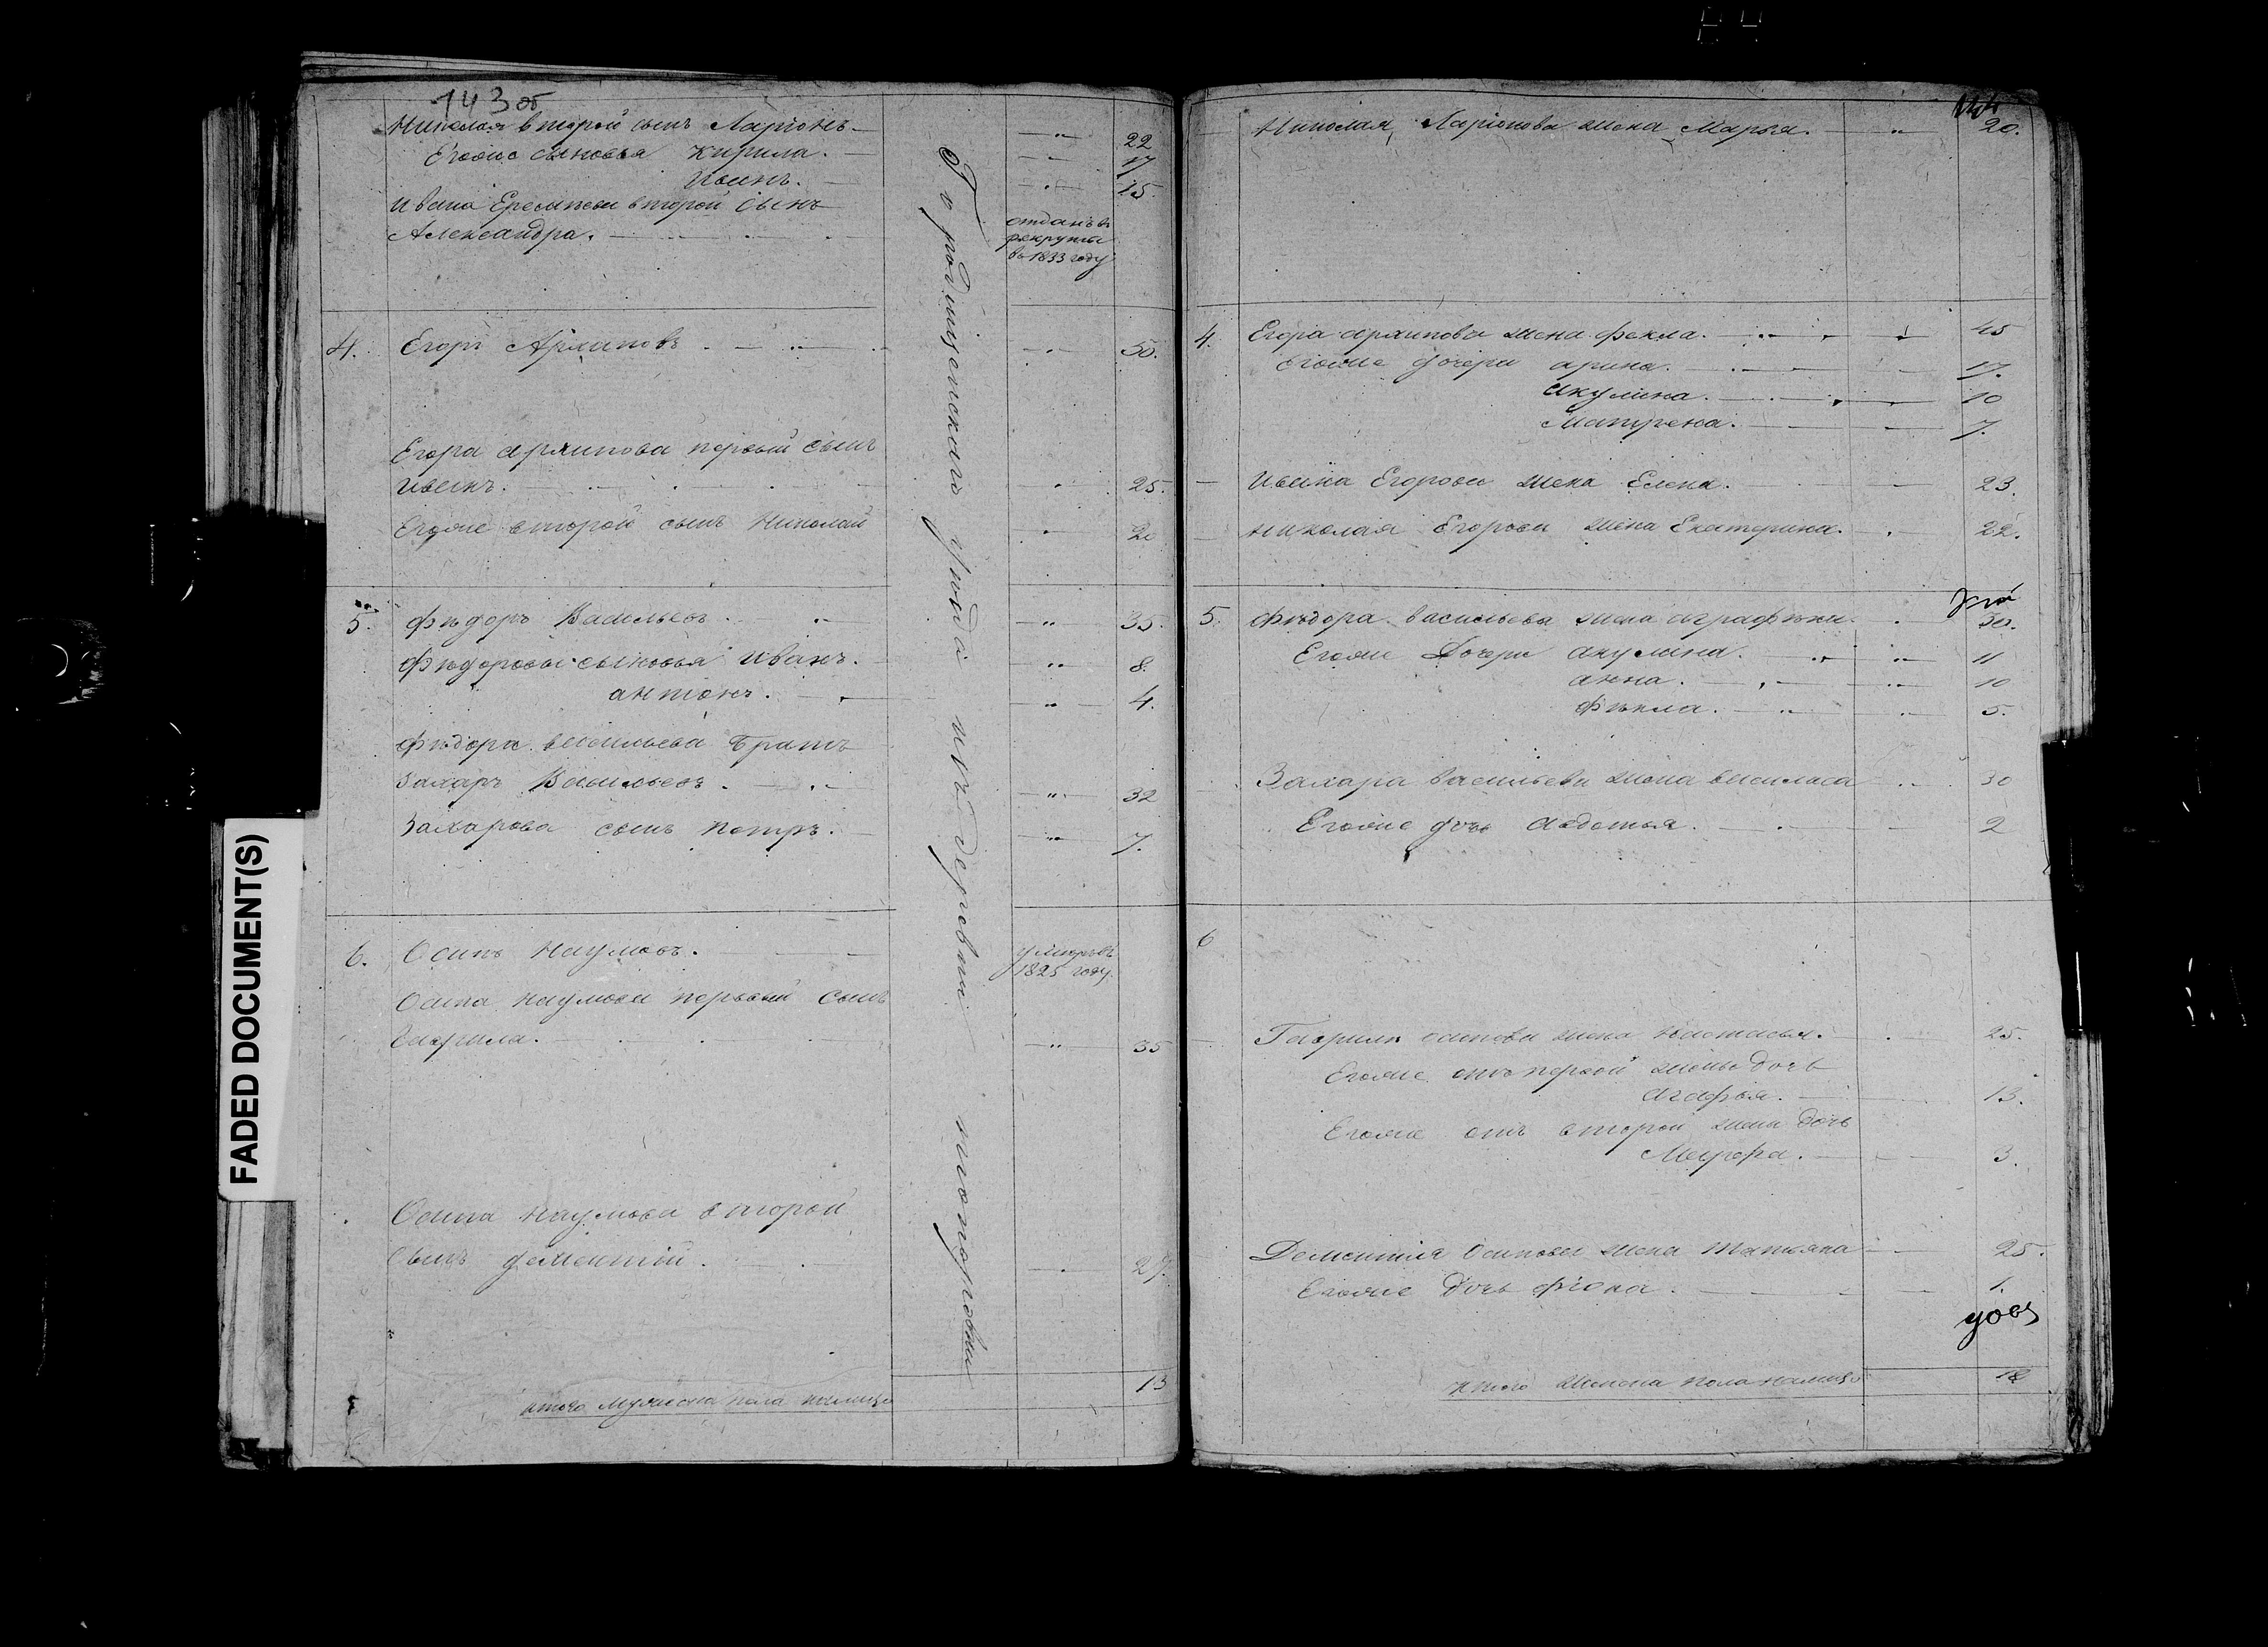 143 об
Николая второй сынъ Ларіонъ 22
Егоже сыновья Кирила. 17
Иванъ. 15.
Ивана второй сынъ
Александра. отданъ въ
рекруты
въ 1833 году
4. Егоръ Архиповъ 50.
Егора Архипова первый сынъ
Иванъ. 25.
Егоже второй сынъ Николай 20
5. Фѣдоръ Васильевъ 35.
Фѣдоровы сыновья Иванъ. 8.
антонъ. 4.
Фѣдора Васильева братъ
Захаръ Васильевъ. 32
Захарова сынъ Петръ. 7.
6. Осипъ Наумовъ. умеръ въ
1825 году.
Осипа Наумова первый сынъ
Гаврила. 35
Осипа Наумова второй
сынъ дементій. 27.
итого мужеска пола налицо 13
Городищенскаго уѣзда изъ деревни
144
Николая Ларіонова жена Марья. 20.
4. Егора Архипова жена Фекла. 45
Егоже дочери арина. 17.
акулина. 10
Матрена. 7.
Ивана Егорова жена Елена. 23.
николая Егорова жена Екатерина. 22.
5. Фѣдора васильева жена аграфѣна. 30.
Егоже дочери акулина. 11
анна. 10
Фѣкла. 5.
Захара васильева жена василиса 30
Егоже дочь Авдотья. 2
6
Гаврилы осипова жена Настасья. 25.
Егоже отъ первой жены дочь
агафья. 13.
Егоже отъ второй жены дочь
Мавра. 3.
Дементія Осипова жена Татьяна 25.
Егоже дочь фіона. 1.
итого женска пола налицо 18
FADED DOCUMENT(S)